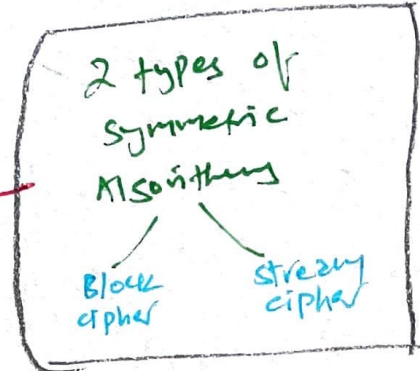 2 types of
symmetric
Algorithms
Block
cipher
stream
cipher